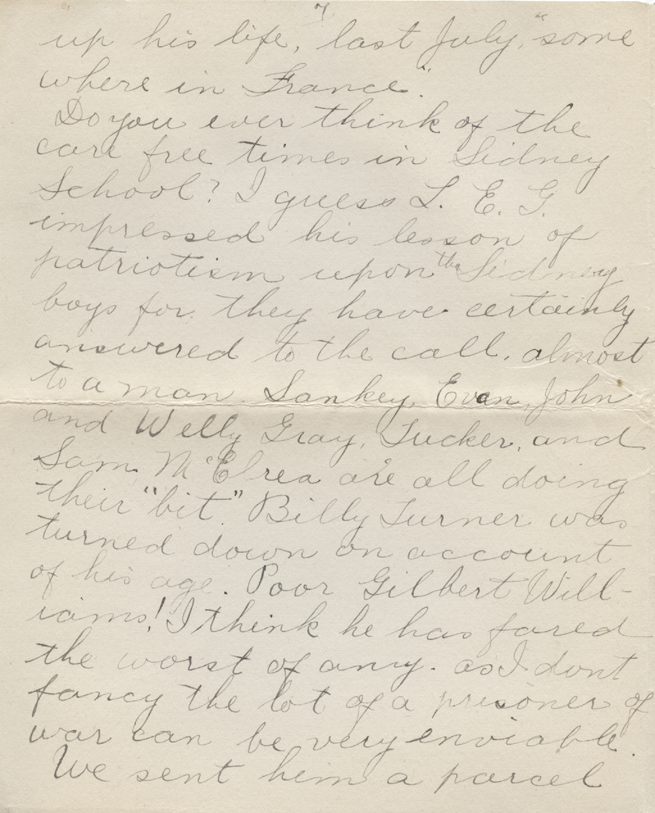 up his life, last July, "some
where in France."
Do you ever think of the
care free times in Sidney
School? I guess L. E. G.
impressed his lesson of
patriotism upon the Sidney
boys for they have certainly
answered to the call, almost
to a man. Sankey, Evan, John
and Welly Gray, Tucker, and
Sam McElrea are all doing
their "bit." Billy Turner was
turned down on account
of his age. Poor Gilbert Will-
iams! I think he has fared
the worst of any. as I dont
fancy the lot of a prisoner of
war can be very enviable.
We sent him a parcel